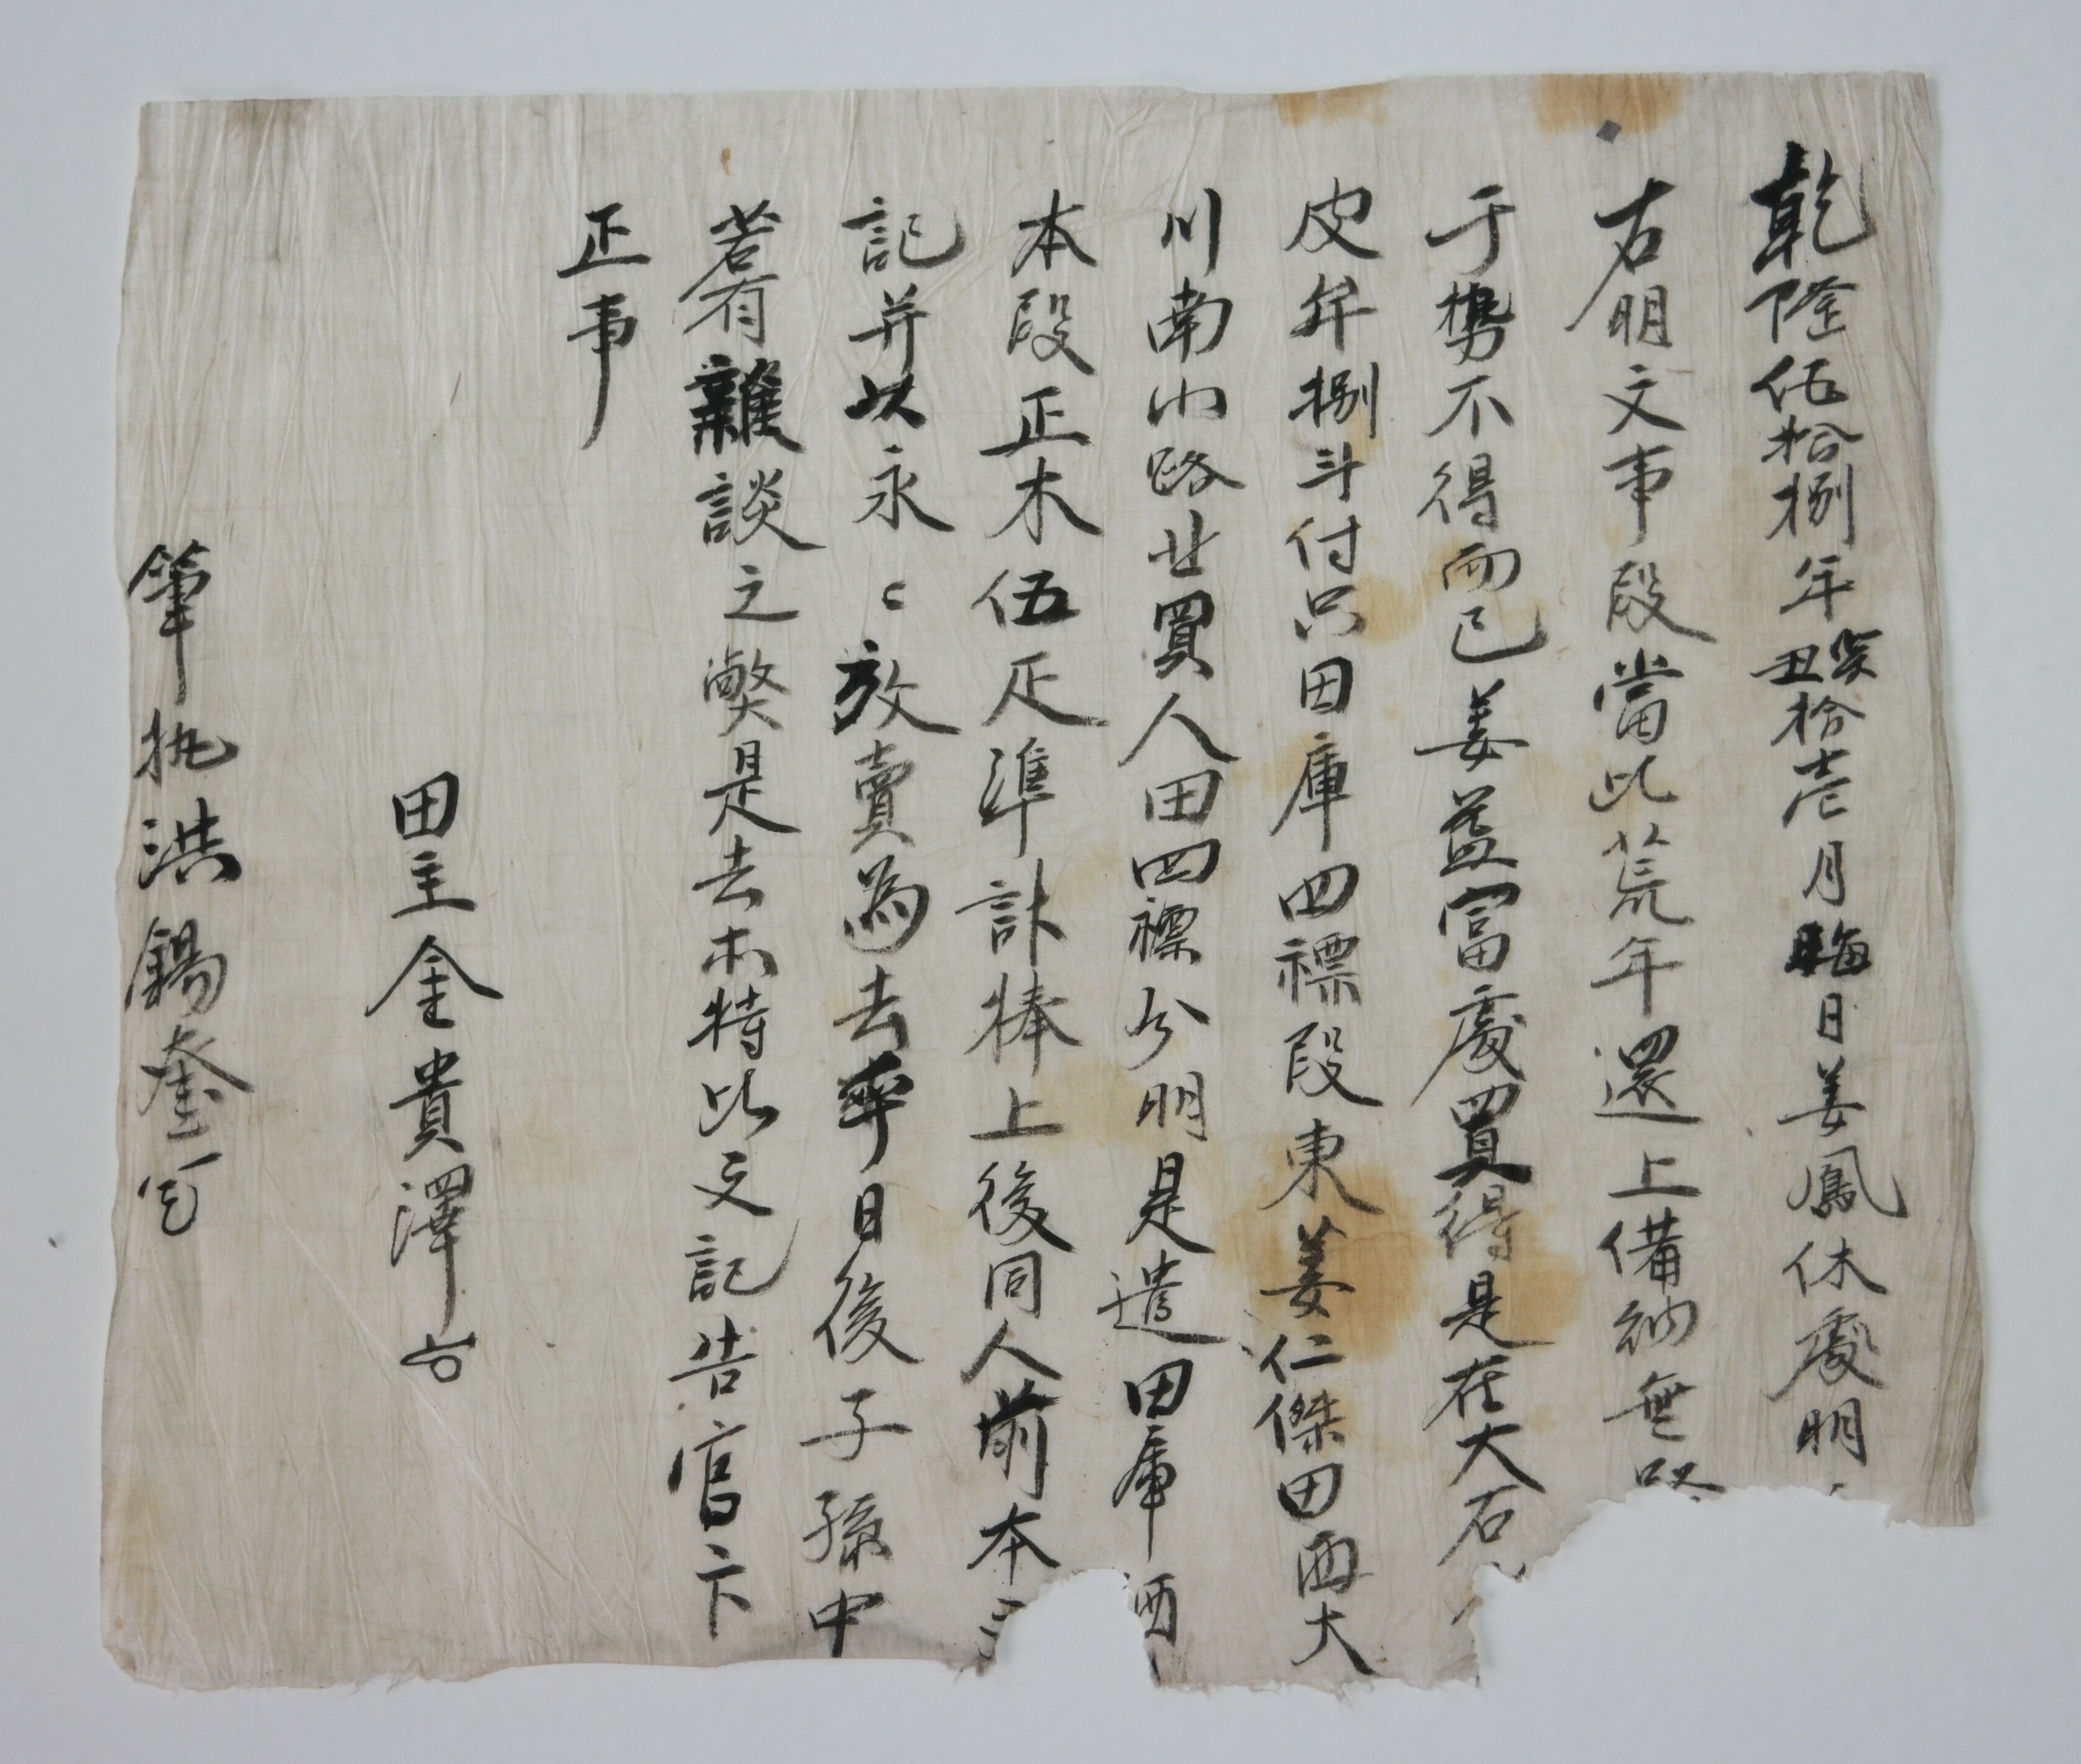 乾隆伍拾捌年癸丑拾壱月晦日姜鳳休處明
右明文事段當此荒年還上備納無路
于勢不得而已姜益富處買得是在大石
皮牟捌斗付只田庫四標段東姜仁傑田西大
川南小路北買人田四標分明是遣田庫
本段正木伍疋準計捧上後同人前本
記并以永〻放賣爲去乎日後子孫中
若有雜談之弊是去木特此文記告官卞
正事
田主金貴澤
筆執洪錫奎